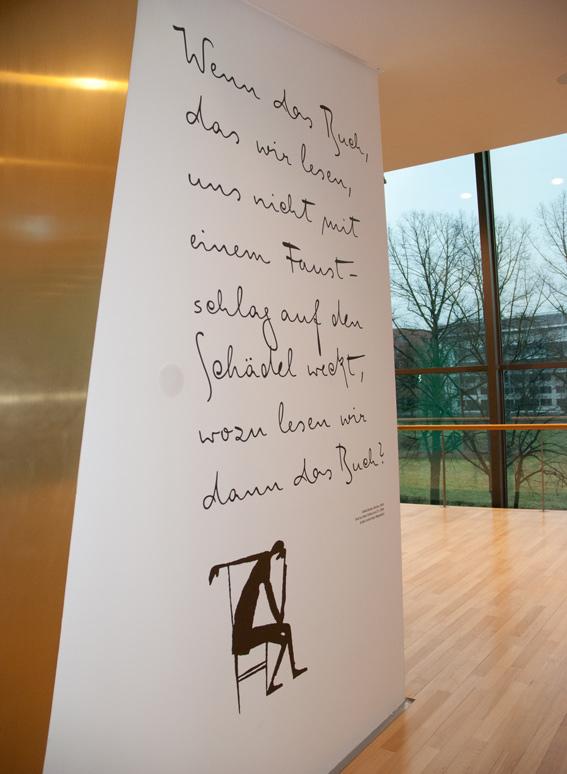 Wenn das Buch,
das wir lesen,
uns nicht mit
einem Faust-
schlag auf den
Schädel weckt,
wozu lesen wir
dann das Buch?